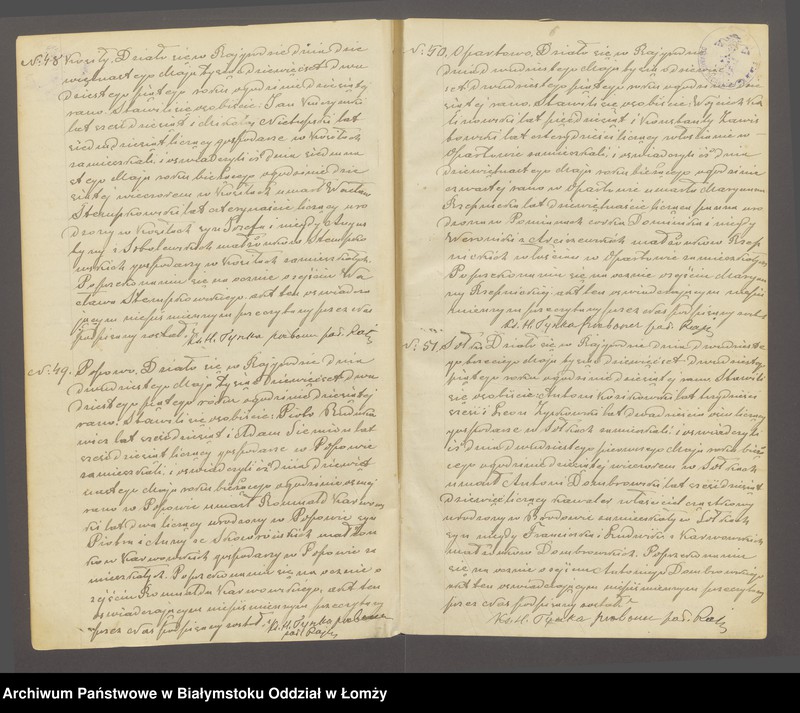 N: 48 Kozły. Działo się w Rajgrodzie dnia dzie
więtnastego Maja tysiąc dziewięćset dwu
dziestego piątego roku o godzinie dziesiątej
rano. Stawili się osobiście: Jan
lat sześćdziesiąt i lat
siedmdziesiąt liczący gospodarze w
zamieszkali i oświadczyli iż dnia siedmna
stego Maja roku bieżącego o godzinie dzie
siątej wieczorem w umarł Wacław
Stempkowski lat czternaście liczący uro
dzony w syn Józefa i niegdy Anny
z Sobolewskich małżonków Stempko
wskich gospodarzy w zamieszkałych.
Po przekonaniu się naocznie o zejściu Wa
cława Stempkowskiego, akt ten oświadcza
jącym niepiśmiennym przeczytany przez Nas
podpisany został. Ks. H. Tyszka proboszcz par. Rajg.
N: 49. Popowo. Działo się w Rajgrodzie dnia
dwudziestego Maja tysiąc dziewięćset dwu
dziestego piątego roku o godzinie dziesiątej
rano. Stawili się osobiście: Piotr
lat sześćdziesiąt i Adam Siemion lat
sześćdziesiąt liczący gospodarze w Popowie
zamieszkali i oświadczyli iż dnia dziewięt
nastego Maja roku bieżącego o godzinie ósmej
rano w Popowie umarł Romuald Karwow
ski lat dwa liczący urodzony w Popowie syn
Piotra i Anny ze Skowrońskich małżon
ków Karwowskich gospodarzy w Popowie za
mieszkałych. Po przekonaniu się naocznie o
zejściu Romualda Karwowskiego, akt ten
oświadczającym niepiśmiennym przeczytany
przez Nas podpisany został. Ks. H. Tyszka proboszcz
par. Rajg.
N: 50. Opartowo. Działo się w Rajgrodzie
dnia dwudziestego Maja tysiąc dziewięć
set dwudziestego piątego roku o godzinie dzie
siątej rano. Stawili się osobiście: Wojciech Ka
linowski lat pięćdziesiąt i Konstanty Zawis
towski lat czterdzieści liczący włościanie w
Opartowie zamieszkali i oświadczyli iż dnia
dziewiętnastego Maja roku bieżącego o godzinie
czwartej rano w Opartowie umarła Maryanna
Rzepnicka lat dziewiętnaście licząca panna uro
dzona w córka Dominika i niegdy
Weroniki z małżonków Rzep
nickich włościan w Opartowie zamieszkałych.
Po przekonaniu się naocznie o zejściu Maryan
ny Rzepnickiej, akt ten oświadczającym niepiś
miennym przeczytany przez Nas podpisany został.
Ks. H. Tyszka proboszcz par. Rajg.
N: 51. Sołki. Działo się w Rajgrodzie dnia dwudzieste
go trzeciego Maja tysiąc dziewięćset dwudziestego
piątego roku o godzinie dziesiątej rano. Stawili
się osobiście: Antoni lat trzydzieści
sześć i Leon Zyskowski lat dwadzieścia osm liczący
gospodarze w Sołkach zamieszkali i oświadczyli
iż dnia dwudziestego pierwszego Maja roku bieżą
cego o godzinie dziesiątej wieczorem w Sołkach
umarł Antoni Dombrowski lat sześćdziesiąt
dziewięć liczący kawaler właściciel cząstkowy
urodzony w zamieszkały w Sołkach
syn niegdy Franciszka i Ludwiki z Karwowskich
małżonków Dombrowskich. Po przekonaniu
się naocznie o zejściu Antoniego Dombrowskiego
akt ten oświadczającym niepiśmiennym przeczytany
przez Nas podpisany został.
Ks. H. Tyszka proboszcz par. Rajg.
Archiwum Państwowe w Białymstoku Oddział w Łomży